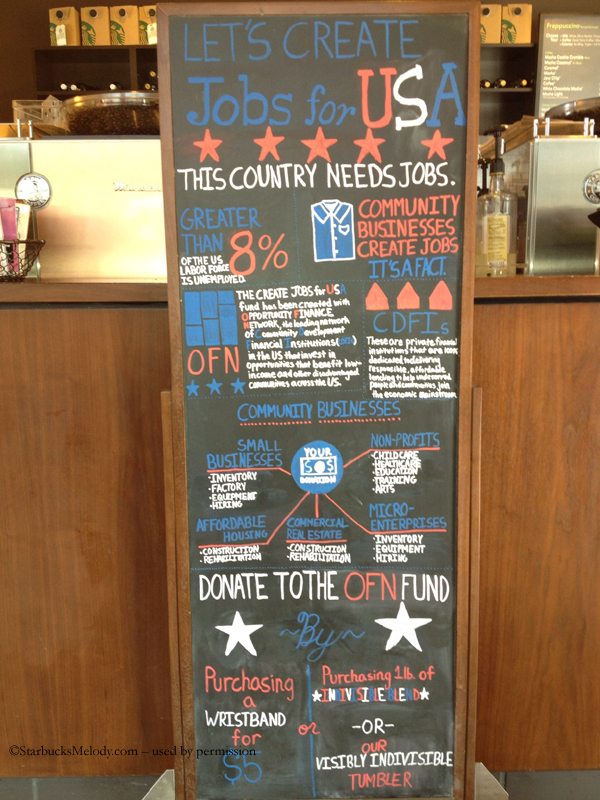 LET'S CREATE
Jobs for USA
THIS COUNTRY NEEDS JOBS.
GREATER
THAN 8%
OF THE US
LABOR FORCE
IS UNEMPLOYED.
COMMUNITY
BUSINESSES
CREATE JOBS
IT'S A FACT.
OFN
THE CREATE JOBS for USA
fund has been created with
OPPORTUNITY FINANCE
NETWORK, the leading network
of Community Development
Financial Institutions (CDFIs)
in the US that invest in
opportunities that benefit low-
income and other disadvantaged
communities across the US.
CDFIs
These are private financial
institutions that are 100%
dedicated to delivering
responsible, affordable
lending to help
people and communities join
the economic mainstream
COMMUNITY BUSINESSES
YOUR
$ $
DONATION
SMALL
BUSINESSES
·INVENTORY
·FACTORY
·EQUIPMENT
·HIRING
NON-PROFITS
·CHILDCARE
·HEALTHCARE
·EDUCATION
·TRAINING
·ARTS
AFFORDABLE
HOUSING
·CONSTRUCTION
·REHABILITATION
COMMERCIAL
REAL ESTATE
·CONSTRUCTION
·REHABILITATION
MICRO-
ENTERPRISES
·INVENTORY
·EQUIPMENT
·HIRING
DONATE TO THE OFN FUND
~By~
Purchasing
a
WRISTBAND
for
$5
or
Purchasing 1 lb. of
INDIVISIBLE BLEND
-OR-
OUR
VISIBLY INDIVISIBLE
TUMBLER
Frappuccino
©StarbucksMelody.com – used by permission